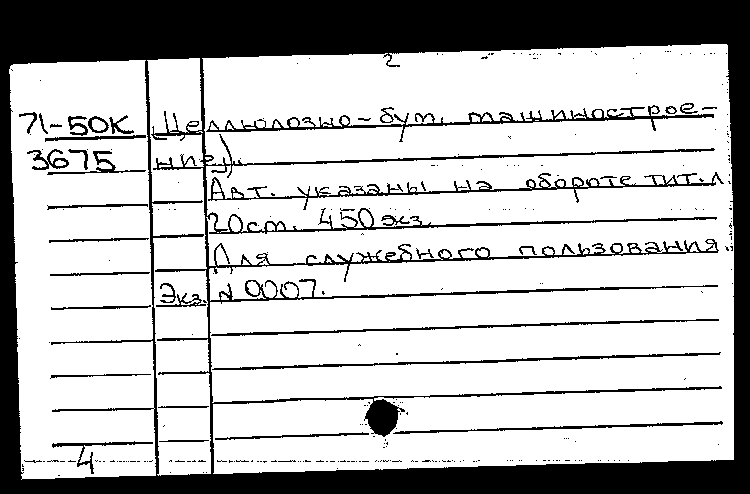 2
71-50К Целлюлозно-бум. машинострое-
3675 ние).
Авт. указаны на обороте тит. л.
20см. 450 экз.
Для служебного пользования.
Экз. № 0007.
4